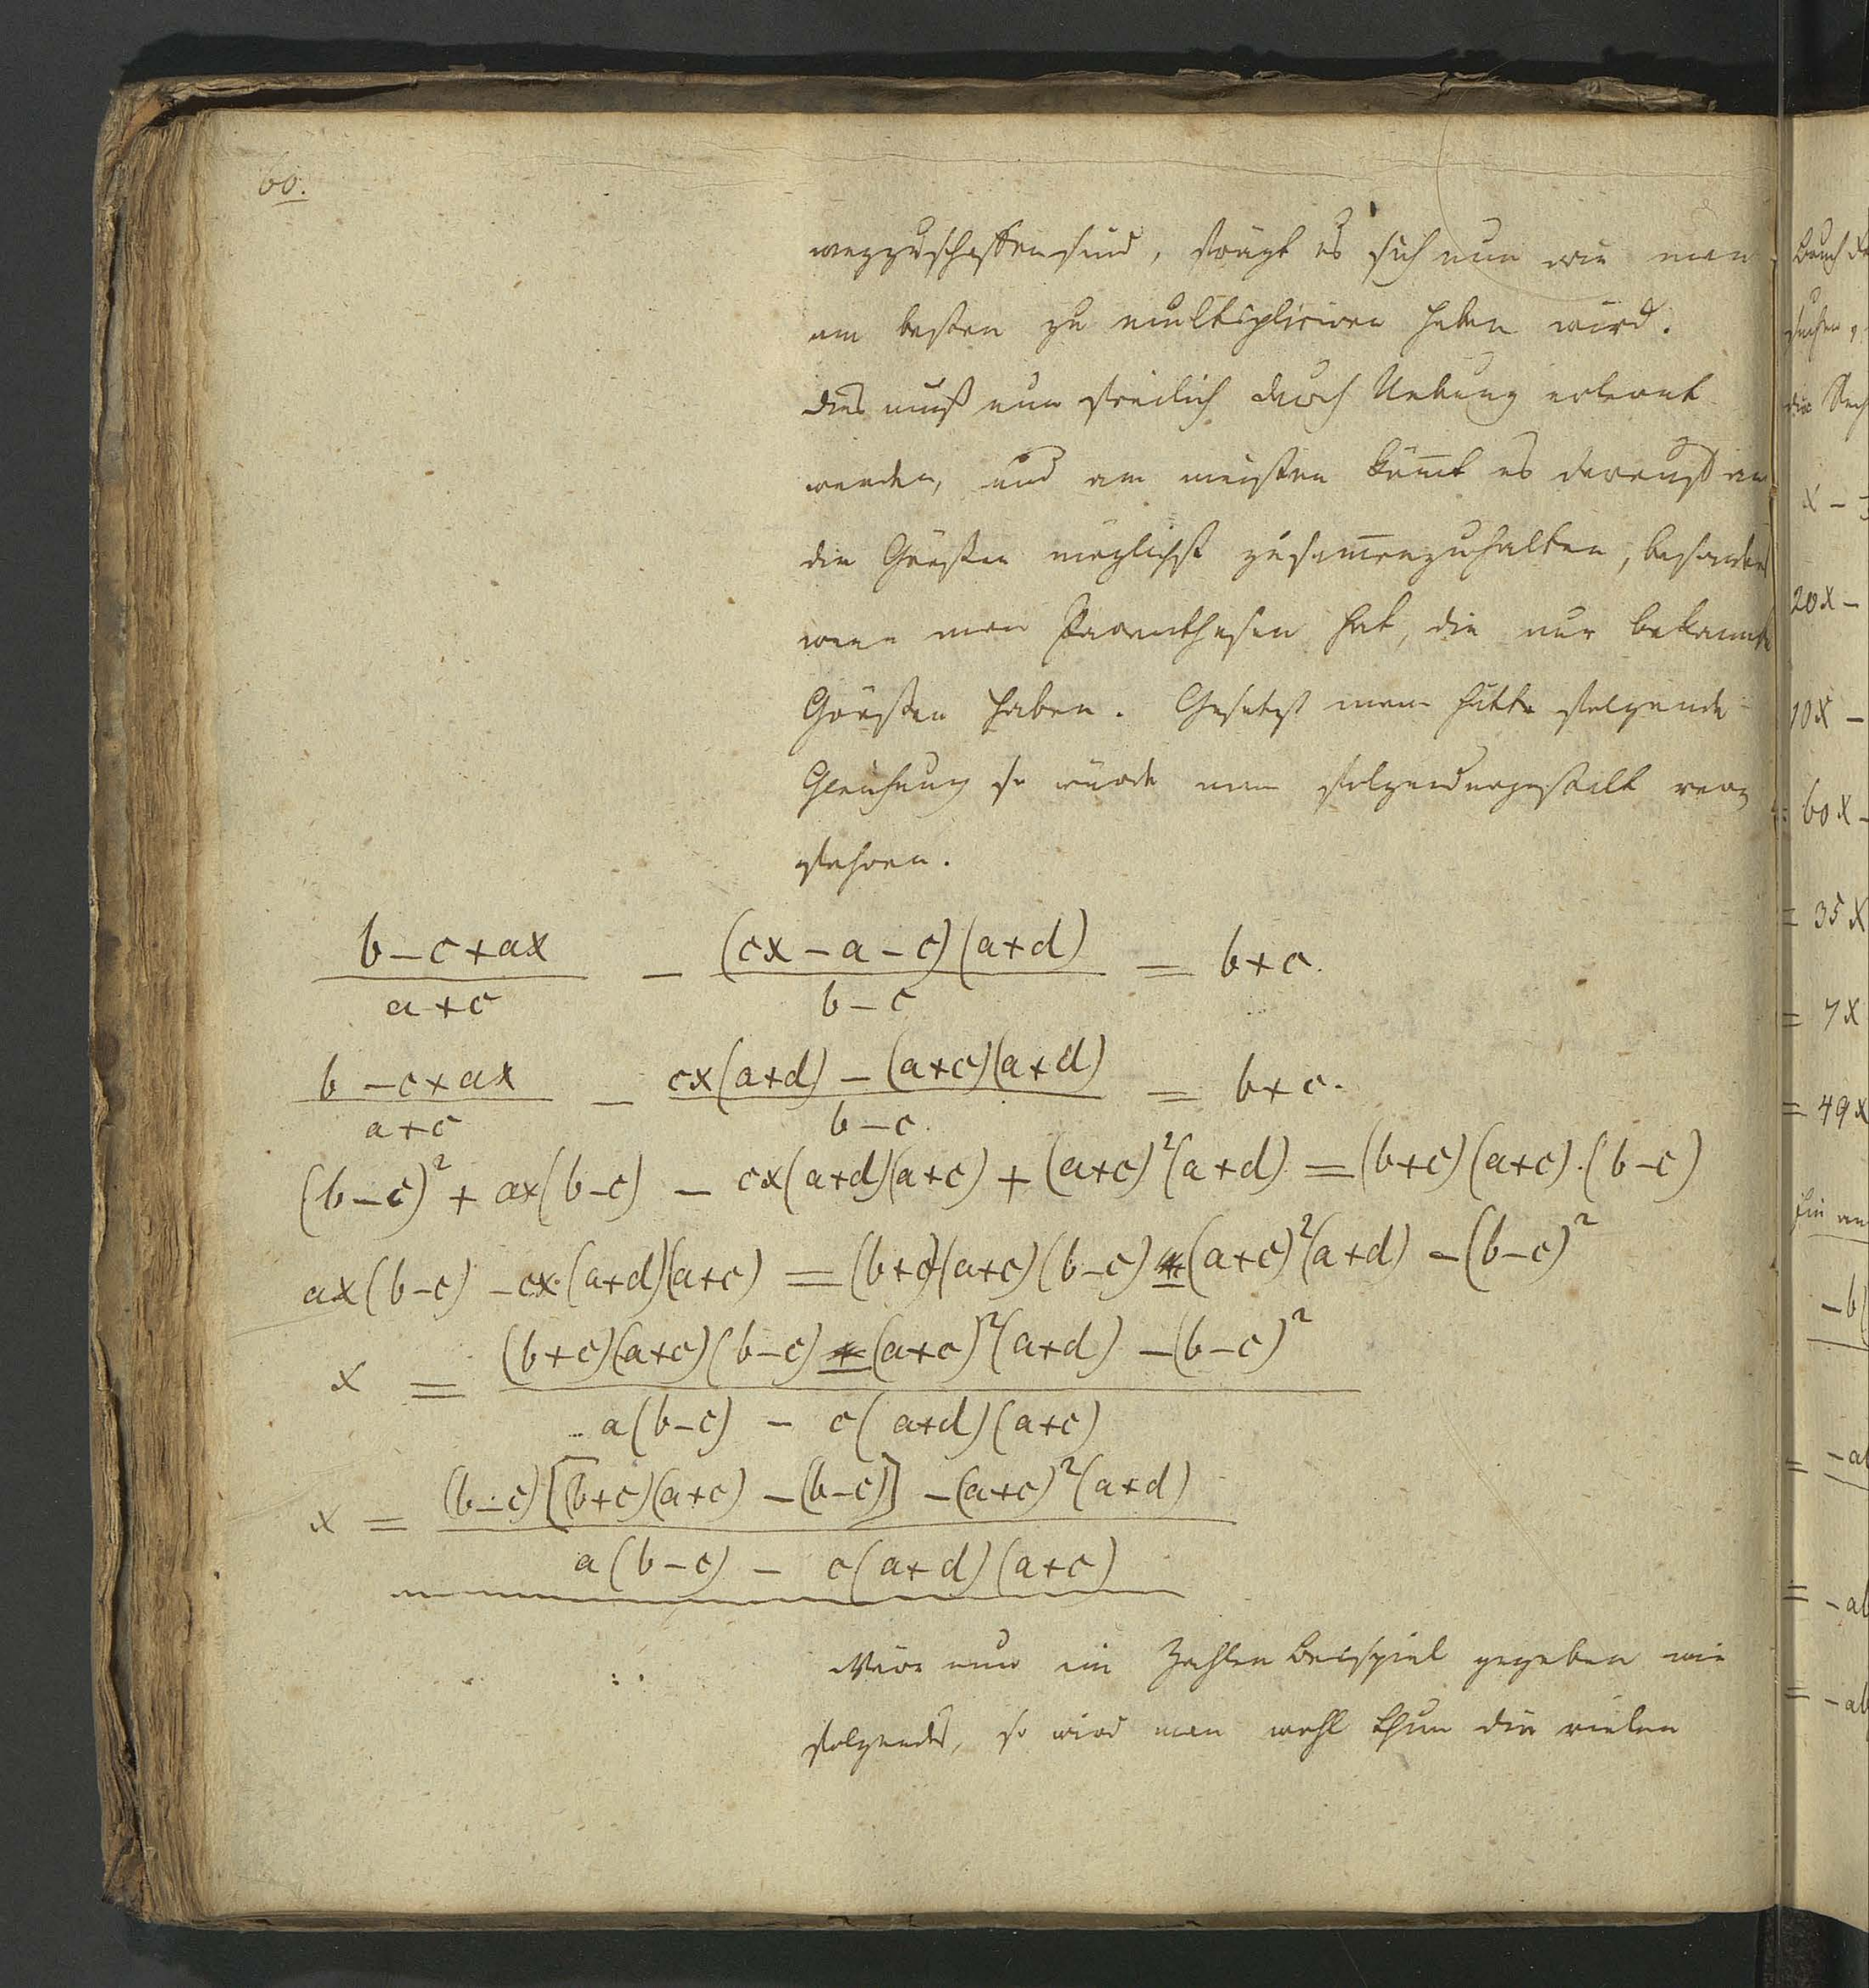 60.
wegzuschaffen sind, frägt es sich nun wie man
am besten zu multipliciren haben wird.
Dies muß nun freilich durch Uebung erlernt
werden, und am meisten kom̄t es darauf an
die Größen möglichst zusam̄enzuhalten, besonders
wenn man Parenthesen hat, die nur bekannte
Größen haben. Gesetzt man hätte folgende
Gleichung so würde man folgendergestalt ver
fahren.
(b-c+ax)/(a+c) - ((cx-a-c)(a+d))/(b-c) = b+c.
(b-c+ax)/(a+c) - (cx(a+d)-(a+c)(a+d))/(b-c) = b+c.
(b-c)² + ax(b-c) - cx(a+d)(a+c) + (a+c)²(a+d) = (b+c)(a+c).(b-c)
ax(b-c) - cx.(a+d)(a+c) = (b+c)(a+c)(b-c) - (a+c)²(a+d) - (b-c)²
x = ((b+c)(a+c)(b-c) - (a+c)²(a+d) - (b-c)²)/(a(b-c) - c(a+d)(a+c))
x = ((b-c)[(b+c)(a+c) - (b-c)] - (a+c)²(a+d))/(a(b-c) - c(a+d)(a+c))
Wär nun ein Zahlen Beispiel gegeben wie
folgendes, so wird man wohl thun die vielen
20x-
10x-
= 60x-
= 35x
= 7x
= 49x